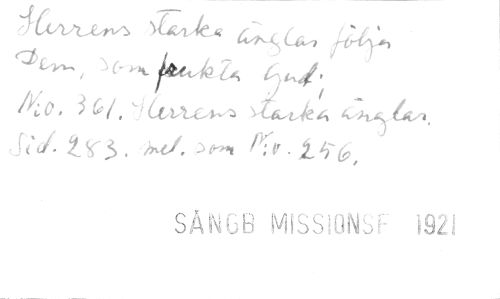 Herrens starka änglar följa
Dem, som frukta Gud;
N:o. 361. Herrens starka änglar.
Sid. 283. mel. som N:o. 256.
SÅNGB MISSIONSF 1921